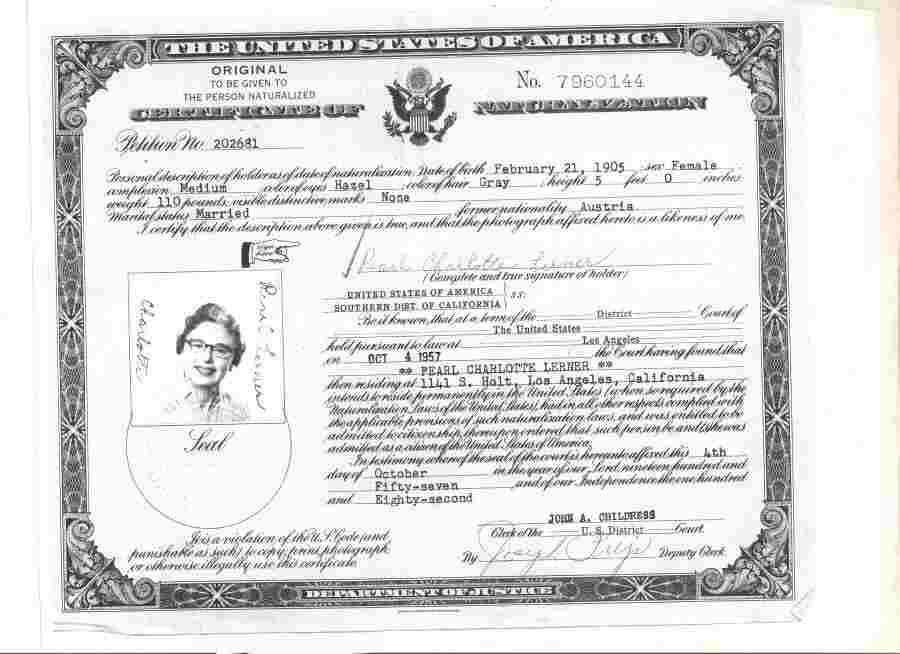 THE UNITED STATES OF AMERICA
ORIGINAL
TO BE GIVEN TO
THE PERSON NATURALIZED
No. 7960144
CERTIFICATE OF NATURALIZATION
Petition No. 202681
Personal description of holder as of date of naturalization: Date of birth February 21, 1905 ; sex Female ;
complexion Medium ; color of eyes Hazel ; color of hair Gray ; height 5 feet 0 inches;
weight 110 pounds; visible distinctive marks None
Marital status Married former nationality Austria
I certify that the description above given is true, and that the photograph affixed hereto is a likeness of me.
Pearl Charlotte Lerner
(Complete and true signature of holder)
Pearl C. Lerner
Charlotte
Seal
UNITED STATES OF AMERICA
SOUTHERN DIST. OF CALIFORNIA
ss:
Be it known, that at a term of the District Court of
The United States
held pursuant to law at Los Angeles
on OCT 4 1957 the Court having found that
** PEARL CHARLOTTE LERNER **
then residing at 1141 S. Holt, Los Angeles, California
intends to reside permanently in the United States (when so required by the
Naturalization Laws of the United States), had in all other respects complied with
the applicable provisions of such naturalization laws, and was entitled to be
admitted to citizenship, thereupon ordered that such person be and (s)he was
admitted as a citizen of the United States of America.
In testimony whereof the seal of the court is hereunto affixed this 4th
day of October in the year of our Lord nineteen hundred and
Fifty-seven and of our Independence the one hundred
and Eighty-second
JOHN A. CHILDRESS
Clerk of the U. S. District Court.
By Deputy Clerk.
It is a violation of the U.S. Code (and
punishable as such) to copy, print, photograph,
or otherwise illegally use this certificate.
DEPARTMENT OF JUSTICE